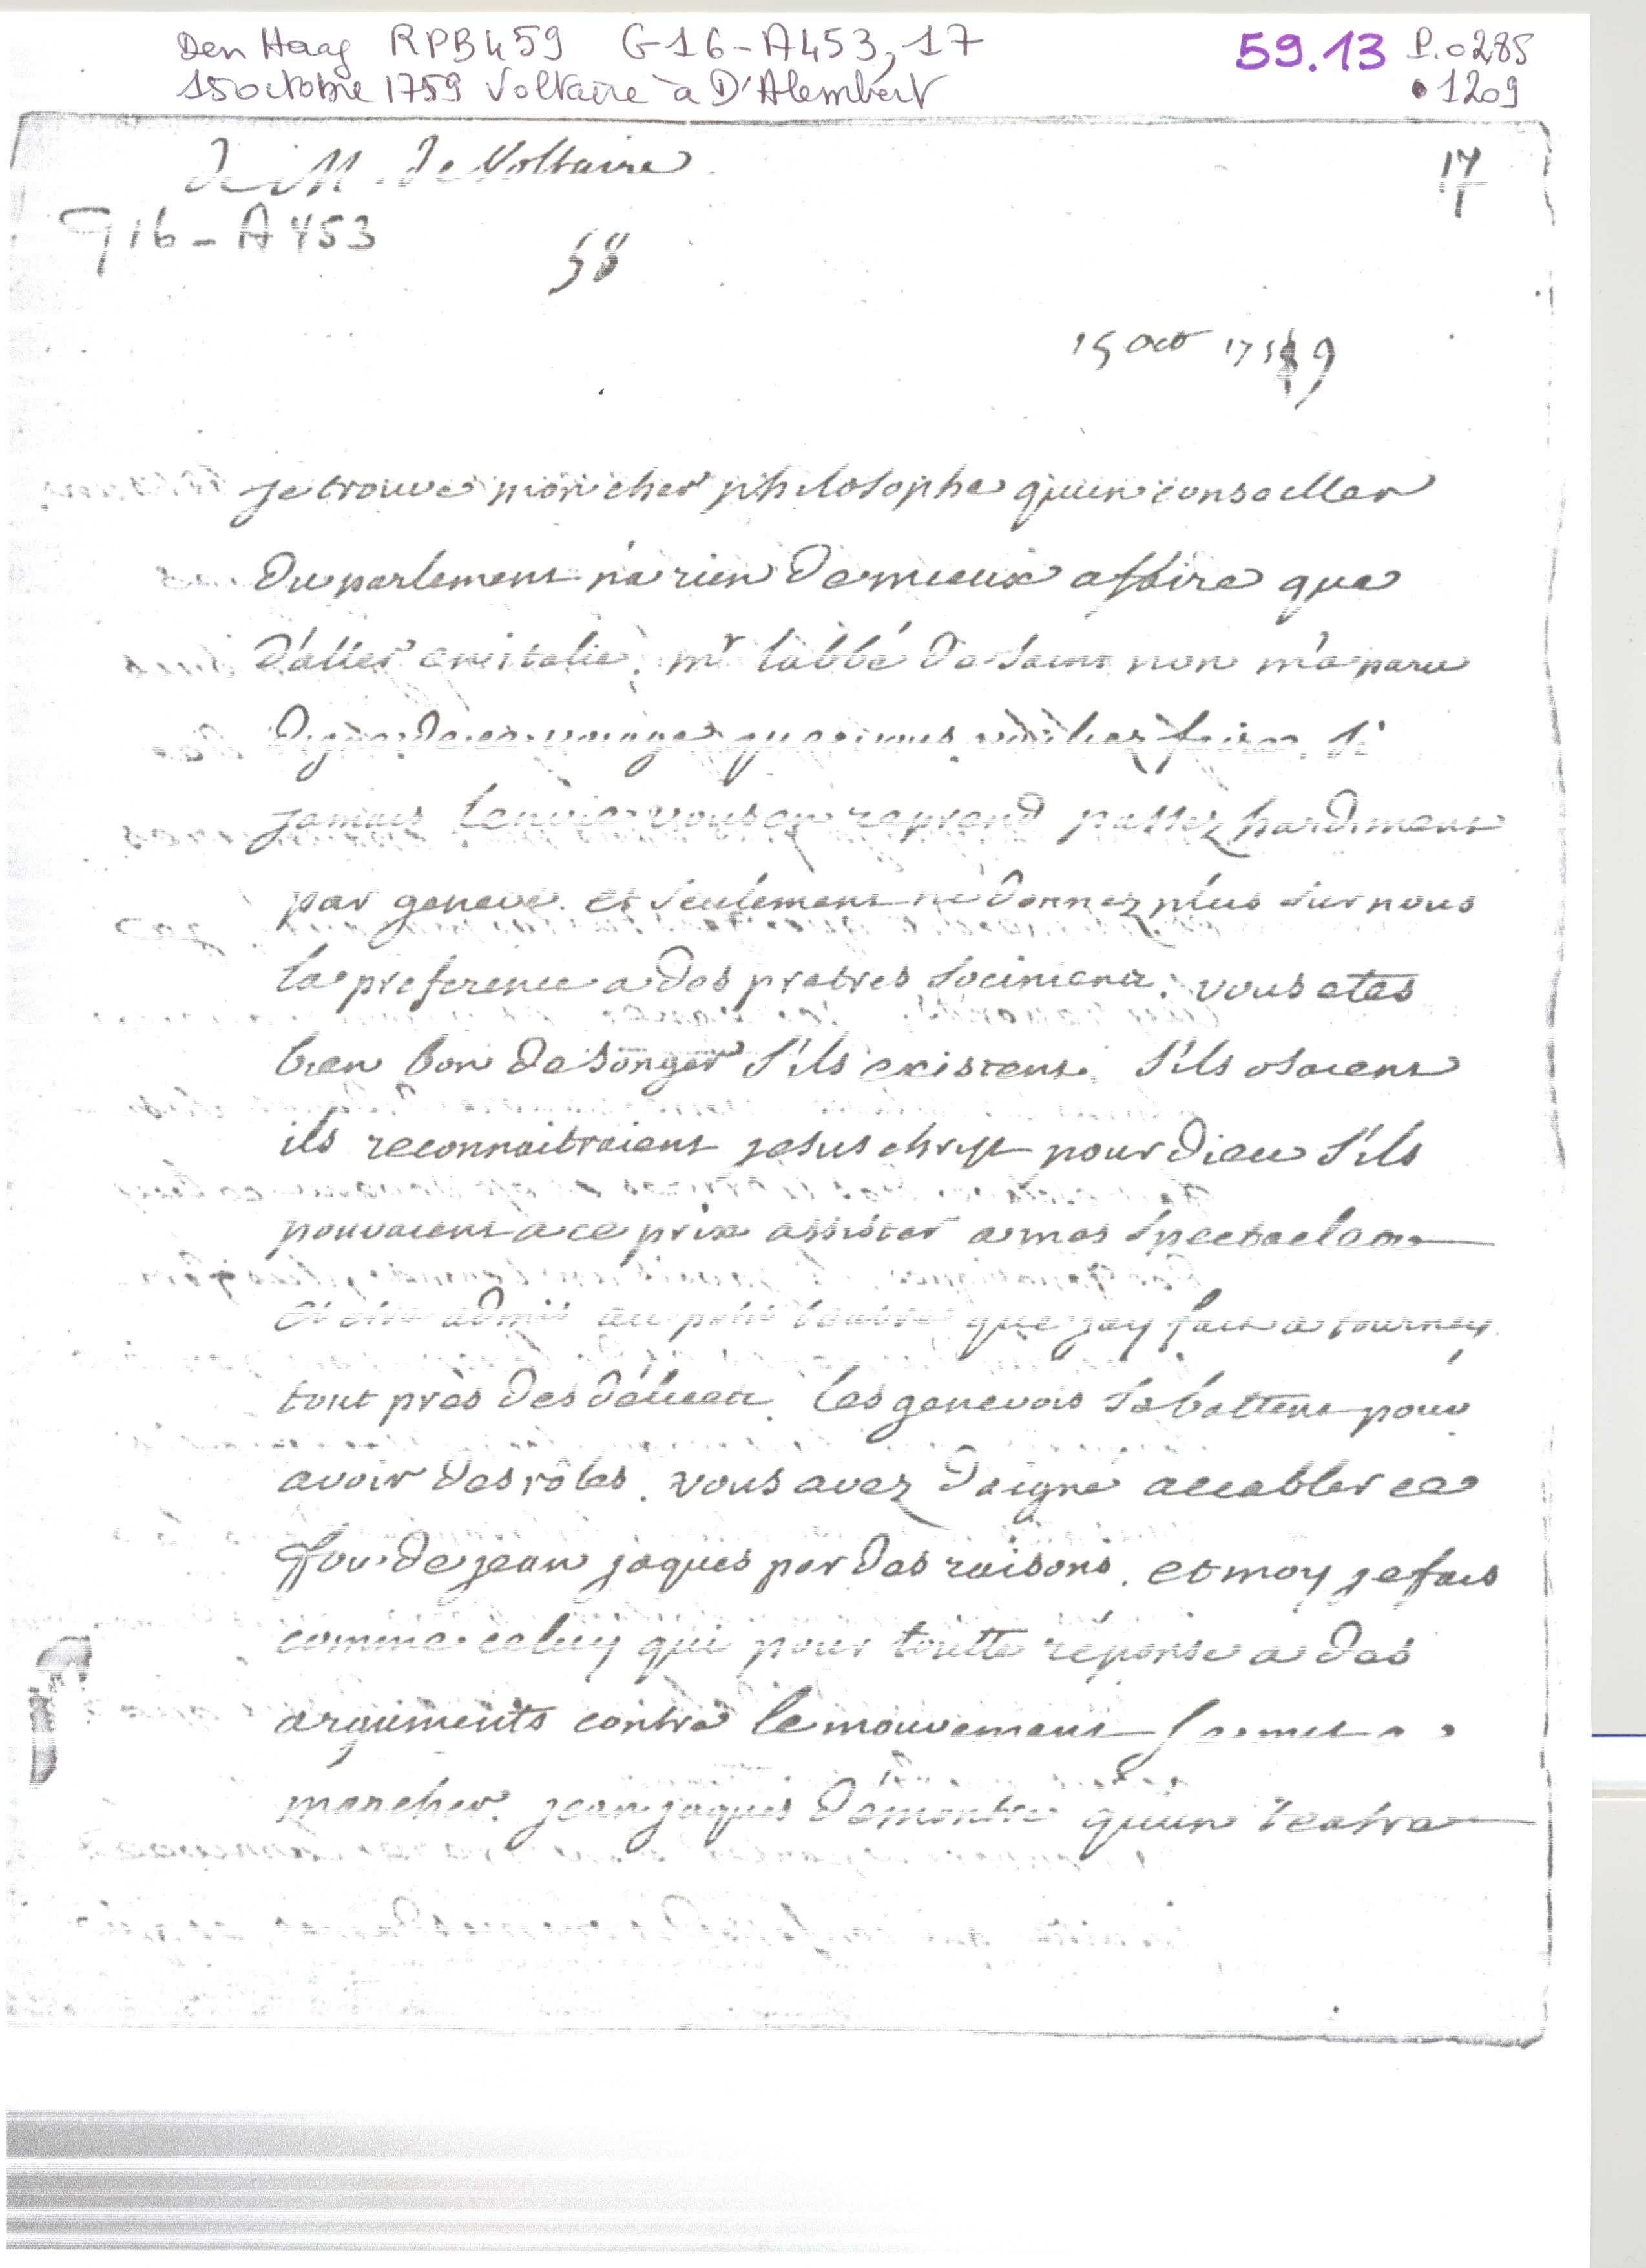 Den Haag RPB459 G16-A453,17
59.13 P.0285
15 octobre 1759 Voltaire à D'Alembert
1209
de M. de Voltaire.
17
G16-A453
58
15 oct 1759
je trouve mon cher philosophe qu'un conseiller
du parlement n'a rien de mieux a faire que
d'aller en italie. mr l'abbé de saint non m'a paru
digne de ce voyage que vous vouliez faire. si
jamais l'envie vous en reprend passez hardiment
par geneve. et seulement ne donnez plus sur nous
la preference a des pretres sociniens. vous etes
bien bon de songer s'ils existent. s'ils osaient
ils reconnaitraient jesus christ pour dieu s'ils
pouvaient a ce prix assister a mes spectacles
et etre admis au petit téatre que jay fait a tourney
tout près des délices. les genevois se battent pour
avoir des rôles. vous avez daigné accabler ce
fou de jean jaques par des raisons. et moy je fais
comme celuy qui pour toutte réponse a des
arguments contre le mouvement se mit a
marcher. jean jaques démontre qu'un teatre